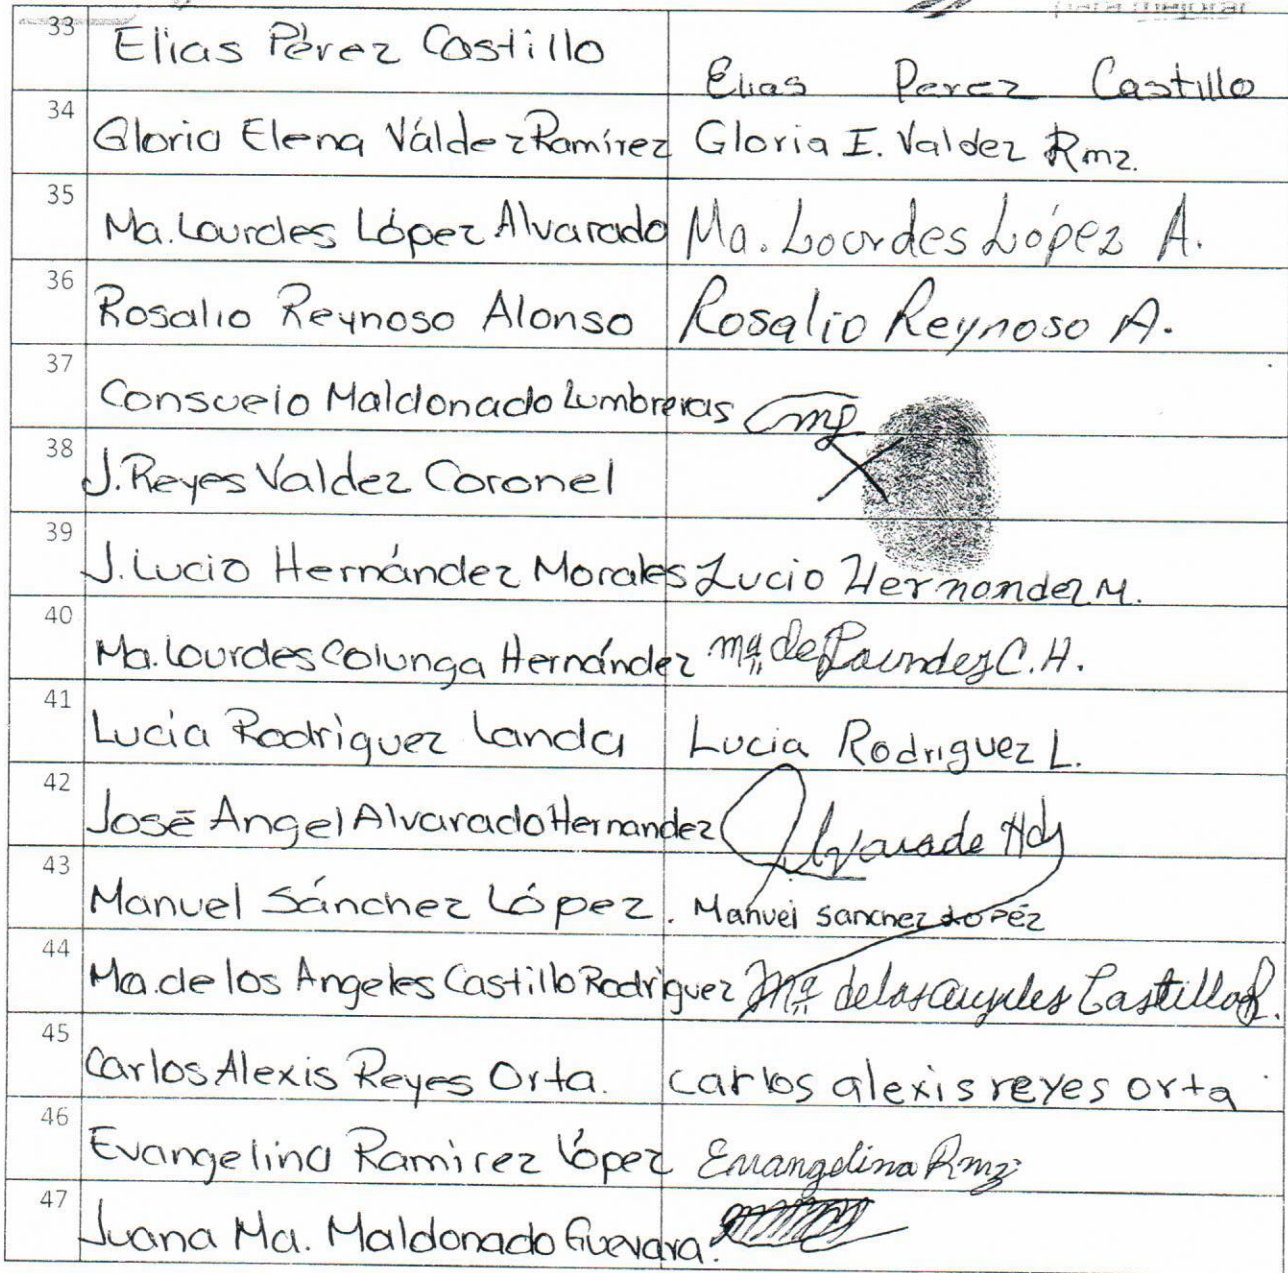 33 Elías Pérez Castillo Elias Perez Castillo
34 Gloria Elena Váldez Ramírez Gloria E. Valdez Rmz.
35 Ma. Lourdes López Alvarado Ma. Lourdes López A.
36 Rosalio Reynoso Alonso Rosalio Reynoso A.
37 Consuelo Maldonado Lumbreras
38 J. Reyes Valdez Coronel
39 J. Lucio Hernández Morales Lucio Hernandez M.
40 Ma. Lourdes Colunga Hernández Ma de Lourdes C. H.
41 Lucía Rodríguez Landa Lucia Rodriguez L.
42 José Angel Alvarado Hernandez Alvarado Hdz
43 Manuel Sánchez López. Manuel Sanchez Lopéz
44 Ma. de los Angeles Castillo Rodríguez Ma de los angeles Castillo R.
45 Carlos Alexis Reyes Orta. carlos alexis reyes orta
46 Evangelina Ramirez López Evangelina Rmz
47 Juana Ma. Maldonado Guevara.